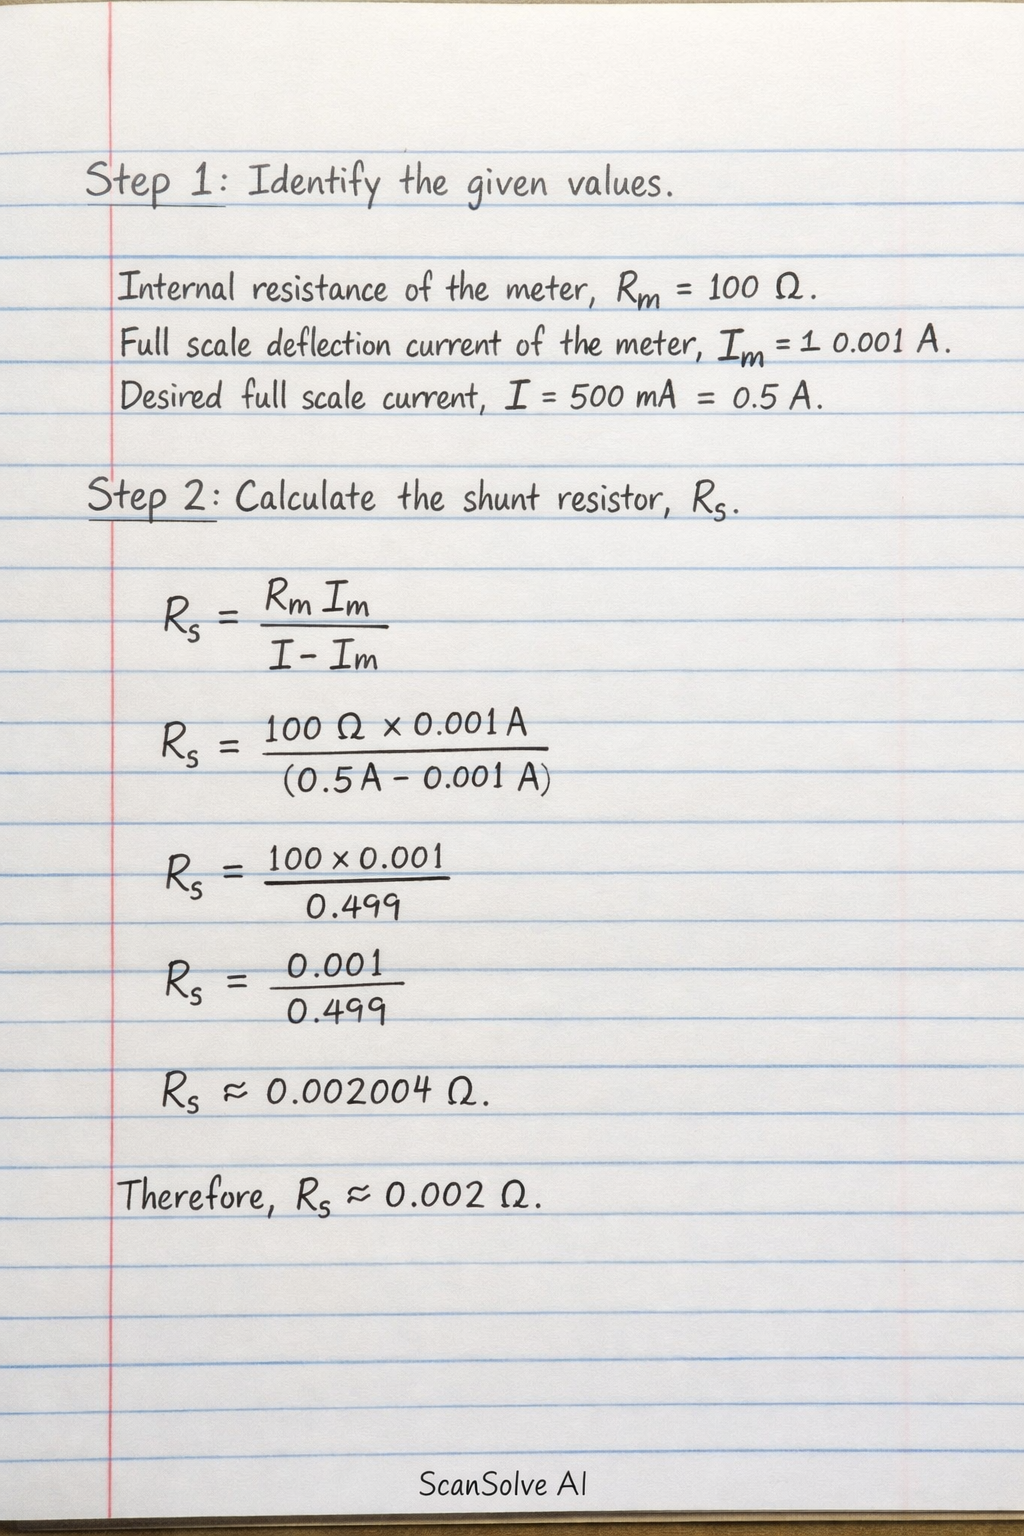 Step 1: Identify the given values.
Internal resistance of the meter, Rₘ = 100 Ω.
Full scale deflection current of the meter, Iₘ = 1 0.001 A.
Desired full scale current, I = 500 mA = 0.5 A.
Step 2: Calculate the shunt resistor, Rₛ.
Rₛ = Rₘ Iₘ / I - Iₘ
Rₛ = 100 Ω × 0.001 A / (0.5 A - 0.001 A)
Rₛ = 100 × 0.001 / 0.499
Rₛ = 0.001 / 0.499
Rₛ ≈ 0.002004 Ω.
Therefore, Rₛ ≈ 0.002 Ω.
ScanSolve AI